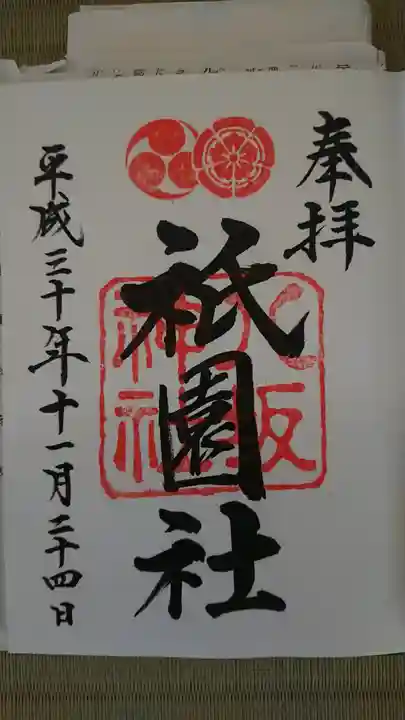 奉拝
祇園社
八坂
神社
平成三十年十一月二十四日